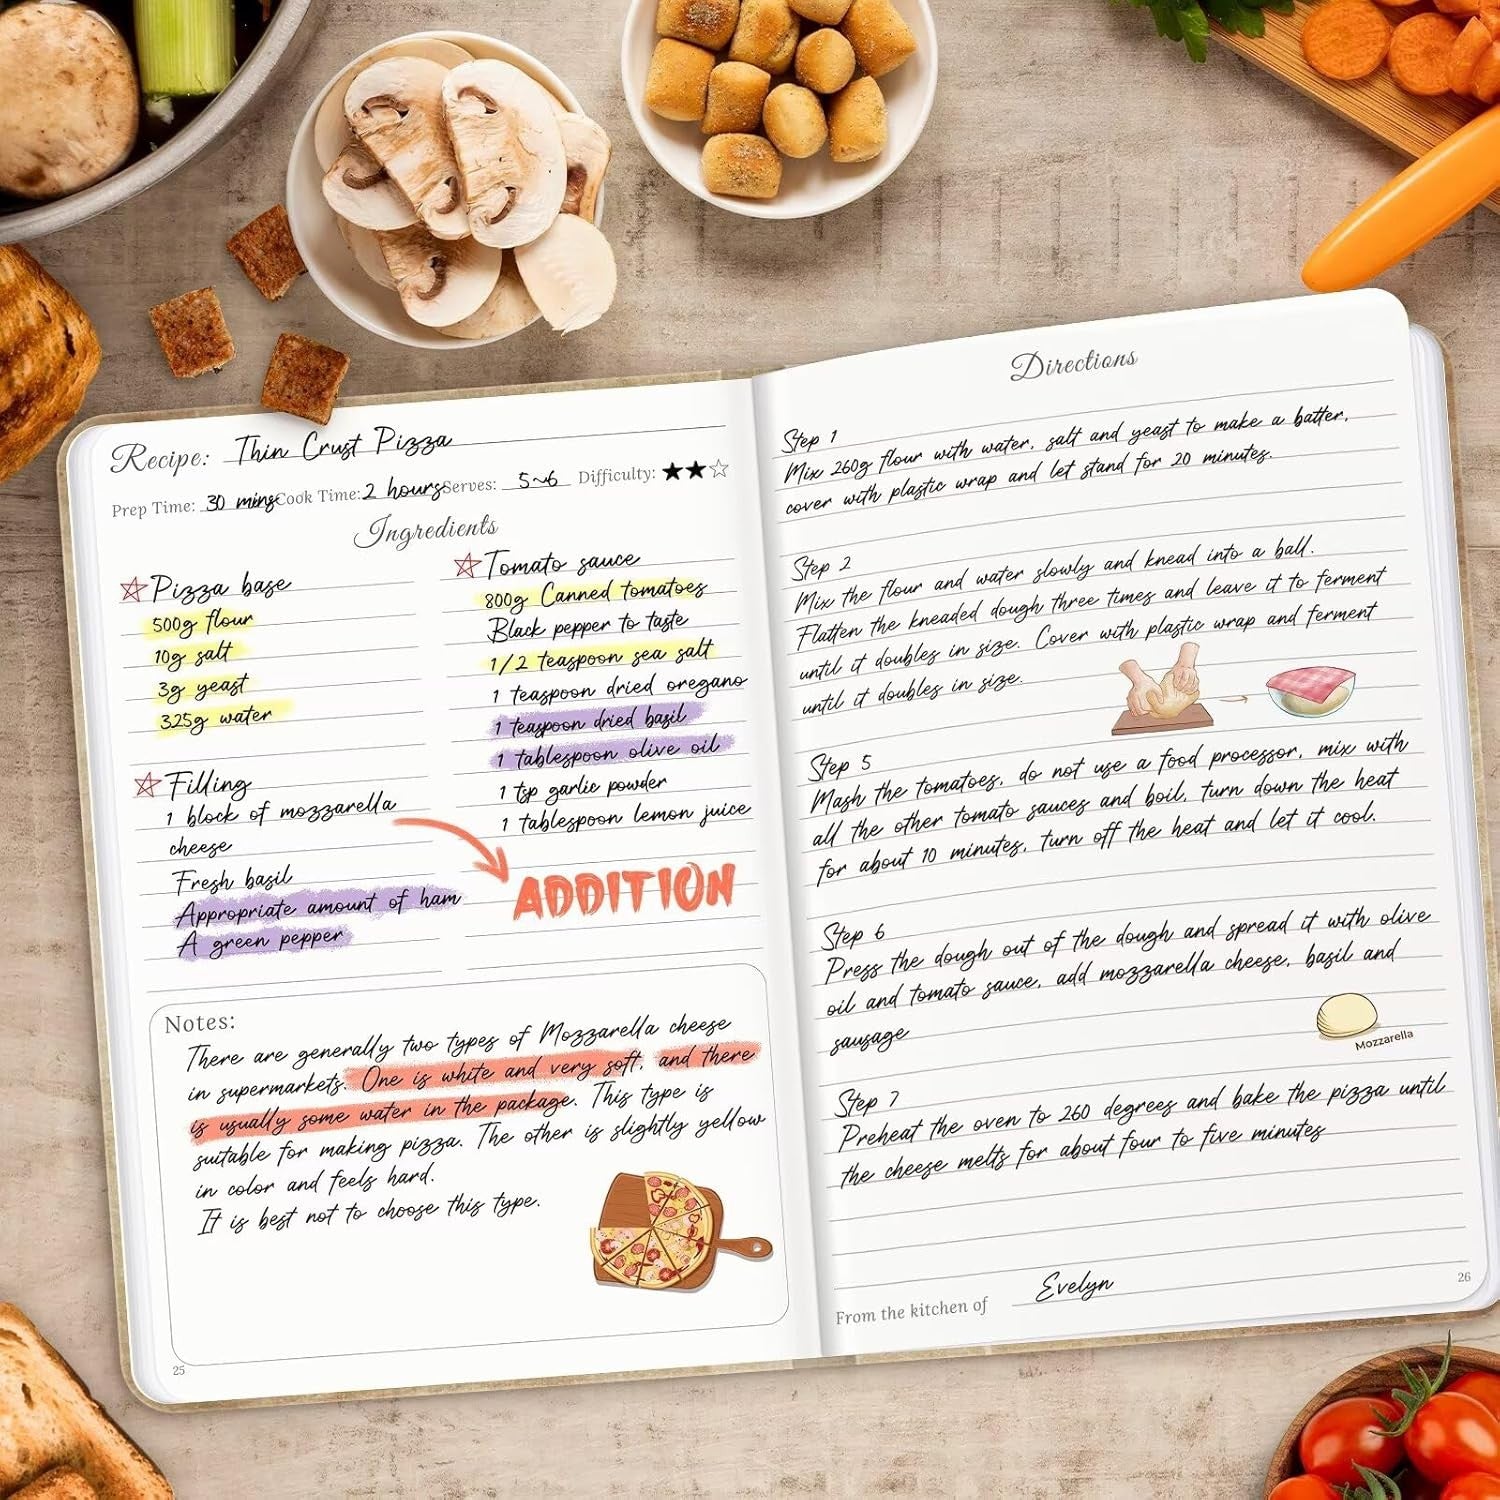 Recipe: Thin Crust Pizza
Prep Time: 30 mins Cook Time: 2 hours Serves: 5~6 Difficulty: ★★☆
Ingredients
☆ Pizza base
500g flour
10g salt
3g yeast
325g water
☆ Filling
1 block of mozzarella
cheese
Fresh basil
Appropriate amount of ham
A green pepper
☆ Tomato sauce
800g Canned tomatoes
Black pepper to taste
1/2 teaspoon sea salt
1 teaspoon dried oregano
1 teaspoon dried basil
1 tablespoon olive oil
1 tsp garlic powder
1 tablespoon lemon juice
ADDITION
Notes:
There are generally two types of Mozzarella cheese
in supermarkets. One is white and very soft, and there
is usually some water in the package. This type is
suitable for making pizza. The other is slightly yellow
in color and feels hard.
It is best not to choose this type.
25
Directions
Step 1
Mix 260g flour with water, salt and yeast to make a batter,
cover with plastic wrap and let stand for 20 minutes.
Step 2
Mix the flour and water slowly and knead into a ball.
Flatten the kneaded dough three times and leave it to ferment
until it doubles in size. Cover with plastic wrap and ferment
until it doubles in size.
Step 5
Mash the tomatoes, do not use a food processor, mix with
all the other tomato sauces and boil, turn down the heat
for about 10 minutes, turn off the heat and let it cool.
Step 6
Press the dough out of the dough and spread it with olive
oil and tomato sauce, add mozzarella cheese, basil and
sausage
Mozzarella
Step 7
Preheat the oven to 260 degrees and bake the pizza until
the cheese melts for about four to five minutes
From the kitchen of Evelyn
26